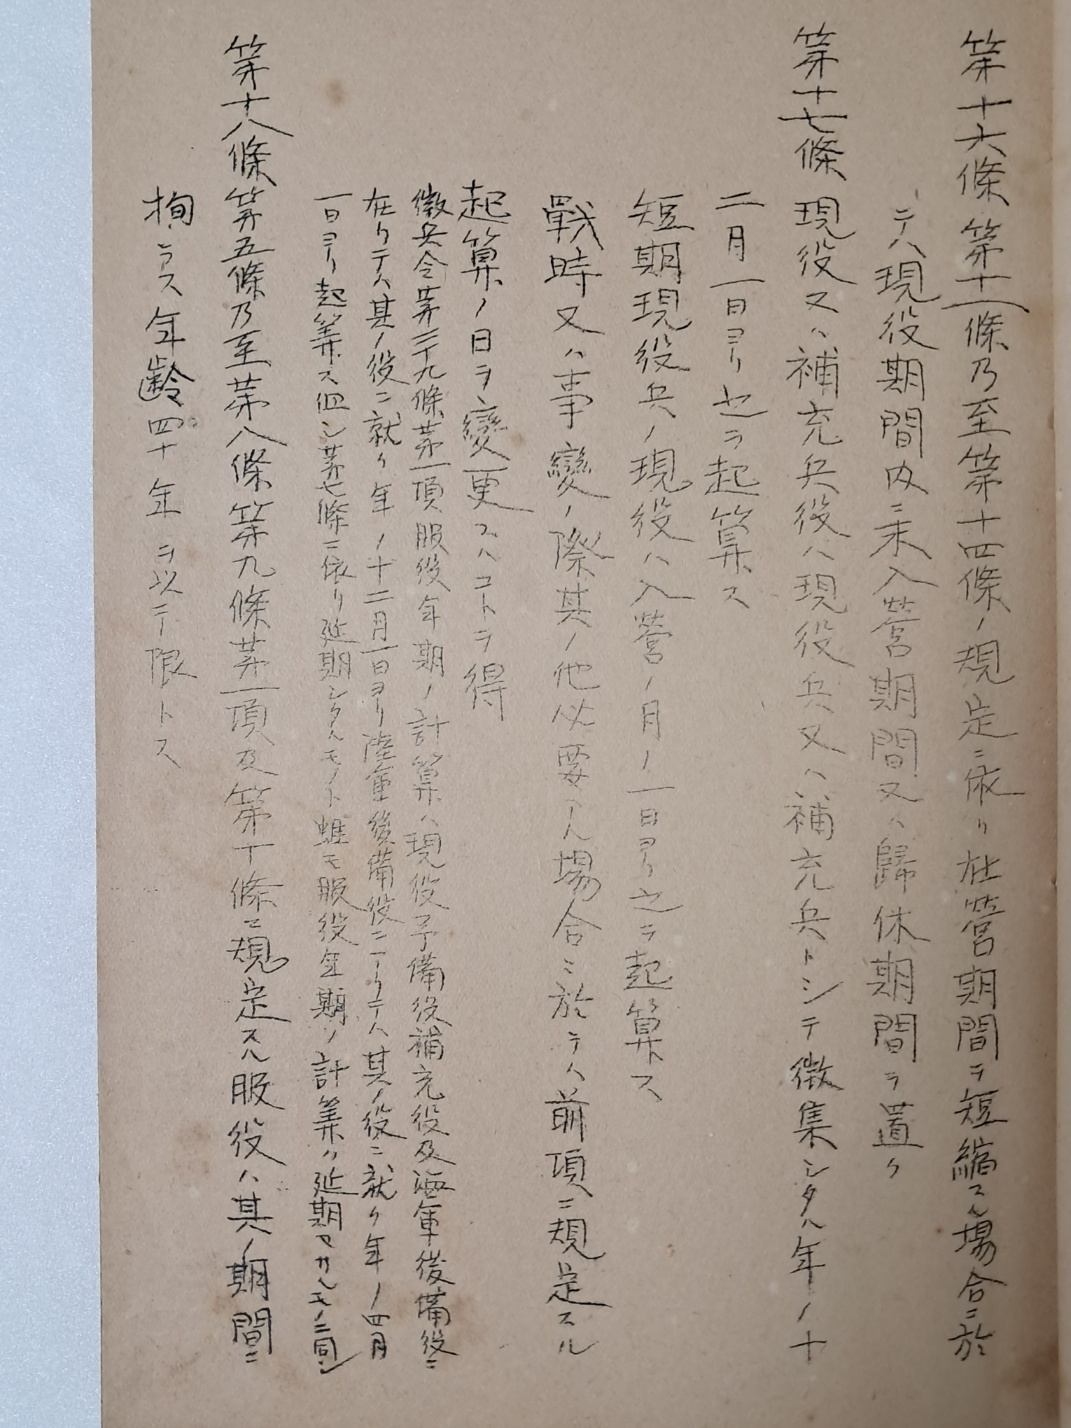 第十六條 第十一條乃至第十四條ノ規定ニ依リ在營期間ヲ短縮スル場合ニ於
テハ現役期間內ニ未入營期間又ハ歸休期間ヲ置ク
第十七條 現役又ハ補充兵役ハ現役兵又ハ補充兵トシテ徵集シタル年ノ十
二月一日ヨリ之ヲ起算ス
短期現役兵ノ現役ハ入營ノ月ノ一日ヨリ之ヲ起算ス
戰時又ハ事變ノ際其ノ他必要アル場合ニ於テハ前項ニ規定スル
起算ノ日ヲ變更スルコトヲ得
徵兵令第三十九條第一項服役年期ノ計算ハ現役予備役補充役及海軍後備役ニ
在リテハ其ノ役ニ就ク年ノ十二月一日ヨリ陸軍後備役ニアリテハ其ノ役ニ就ク年ノ四月
一日ヨリ起算ス但シ第七條ニ依リ延期シタルモノト雖モ服役年期ノ計算ハ延期セサルモノニ同シ
第十八條 第五條乃至第八條第九條第一項及第十條ニ規定スル服役ハ其ノ期間ニ
拘ラス年齡四十年ヲ以テ限トス